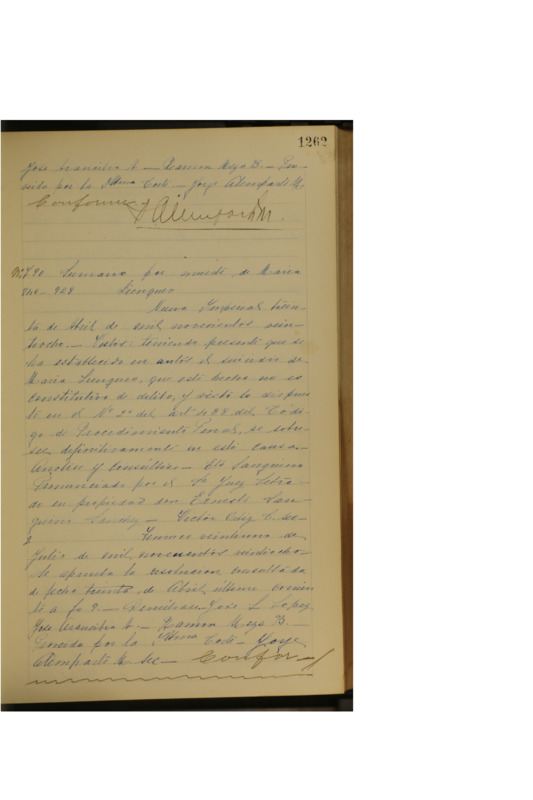 1262
Jose Francisco A. — Ramon Meza B. — Pro-
veido por la Iltma Corte — Jorge Alemparte M.
Conforme J Alemparte M.
Nº 790 Sumario por suicidio de Maria
Año 928 Liengueo
Nueva Imperial trein-
ta de Abril de mil novecientos vein-
tiocho. — Vistos: teniendo presente que se
ha establecido en autos el suicidio de
Maria Liengueo, que este hecho no es
constitutivo de delito, y visto lo dispues
to en el Nº 2º del art. 438 del Códi-
go de Procedimiento Penal, se sobre-
see definitivamente en esta causa.
Anótese y consúltese. — Eto Sanguino
Pronunciada por el Sr Juez Letra-
do en propiedad don Ernesto San-
guino Sanchez — Victor Ortiz C. sec-
Temuco veintiuno de
Julio de mil novecientos veintiocho —
Se aprueba la resolucion consultada
de fecha treinta de Abril último corrien
te a fs 9. — Devuélvase. — José L Lopez
Jose Francisco A. — Ramon Meza B. —
Proveida por la Iltma Corte — Jorge
Alemparte M. sec — Confor